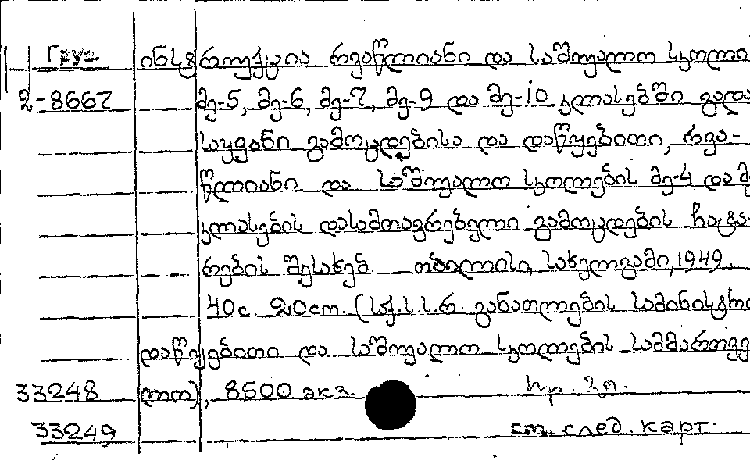 Груз ინსტრუქცია რვაწლიანი და საშუალო სკოლი
2-8667 მე-5, მე-6, მე-7, მე-9 და მე-10 კლასებში გადა
საყვანი გამოცდებისა და დაწყებითი, რვა-
წლიანი და საშუალო სკოლების მე-4 და მ
კლასების დასამთავრებელი გამოცდების ჩატა
რების შესახებ თბილისი, სახელგამი, 1949.
40с. 20см. (საქ.ს.ს.რ. განათლების სამინისტრო
დაწყებითი და საშუალო სკოლების სამმართვე
33248 ლო), 8500 экз.
33249 см. след. карт.